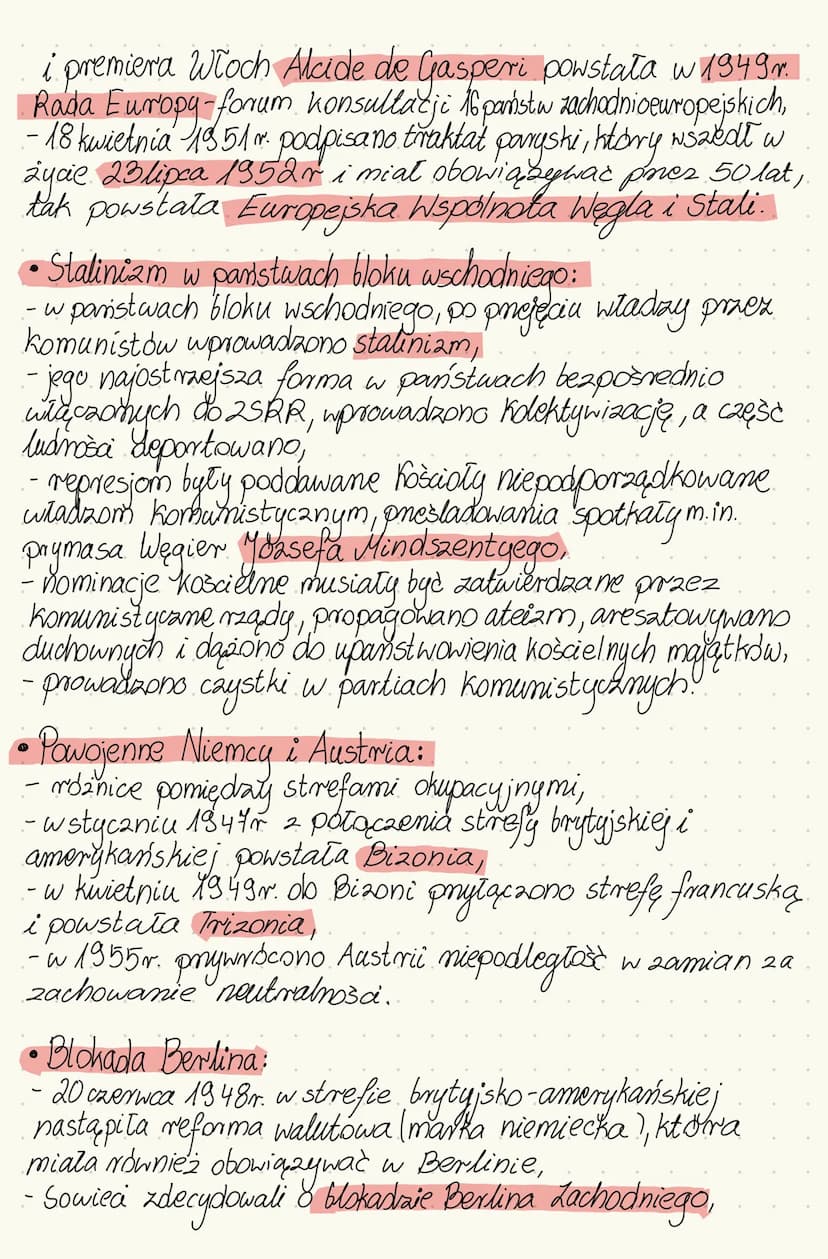 i premiera Włoch Alcide de Gasperi powstała w 1949r.
Rada Europy - forum konsultacji 16 państw zachodnioeuropejskich,
- 18 kwietnia 1951r. podpisano traktat paryski, który wszedł w
życie 23 lipca 1952r i miał obowiązywać przez 50 lat,
tak powstała Europejska Wspólnota Węgla i Stali.
• Stalinizm w państwach bloku wschodniego:
- w państwach bloku wschodniego, po przejęciu władzy przez
komunistów wprowadzono stalinizm,
- jego najostrzejsza forma w państwach bezpośrednio
włączonych do ZSRR, wprowadzono kolektywizację, a część
ludności deportowano,
- represjom były poddawane Kościoły niepodporządkowane
władzom komunistycznym, prześladowania spotkały m.in.
prymasa Węgier Józsefa Mindszentyego,
- nominacje kościelne musiały być zatwierdzane przez
komunistyczne rządy, propagowano ateizm, aresztowywano
duchownych i dążono do upaństwowienia kościelnych majątków,
- prowadzono czystki w partiach komunistycznych.
• Powojenne Niemcy i Austria:
- różnice pomiędzy strefami okupacyjnymi,
- w styczniu 1947r z połączenia strefy brytyjskiej i
amerykańskiej powstała Bizonia,
- w kwietniu 1949r. do Bizoni przyłączono strefę francuską
i powstała Trizonia,
- w 1955r. przywrócono Austrii niepodległość w zamian za
zachowanie neutralności.
• Blokada Berlina:
- 20 czerwca 1948r. w strefie brytyjsko-amerykańskiej
nastąpiła reforma walutowa (marka niemiecka), która
miała również obowiązywać w Berlinie,
- Sowieci zdecydowali o blokadzie Berlina Zachodniego,